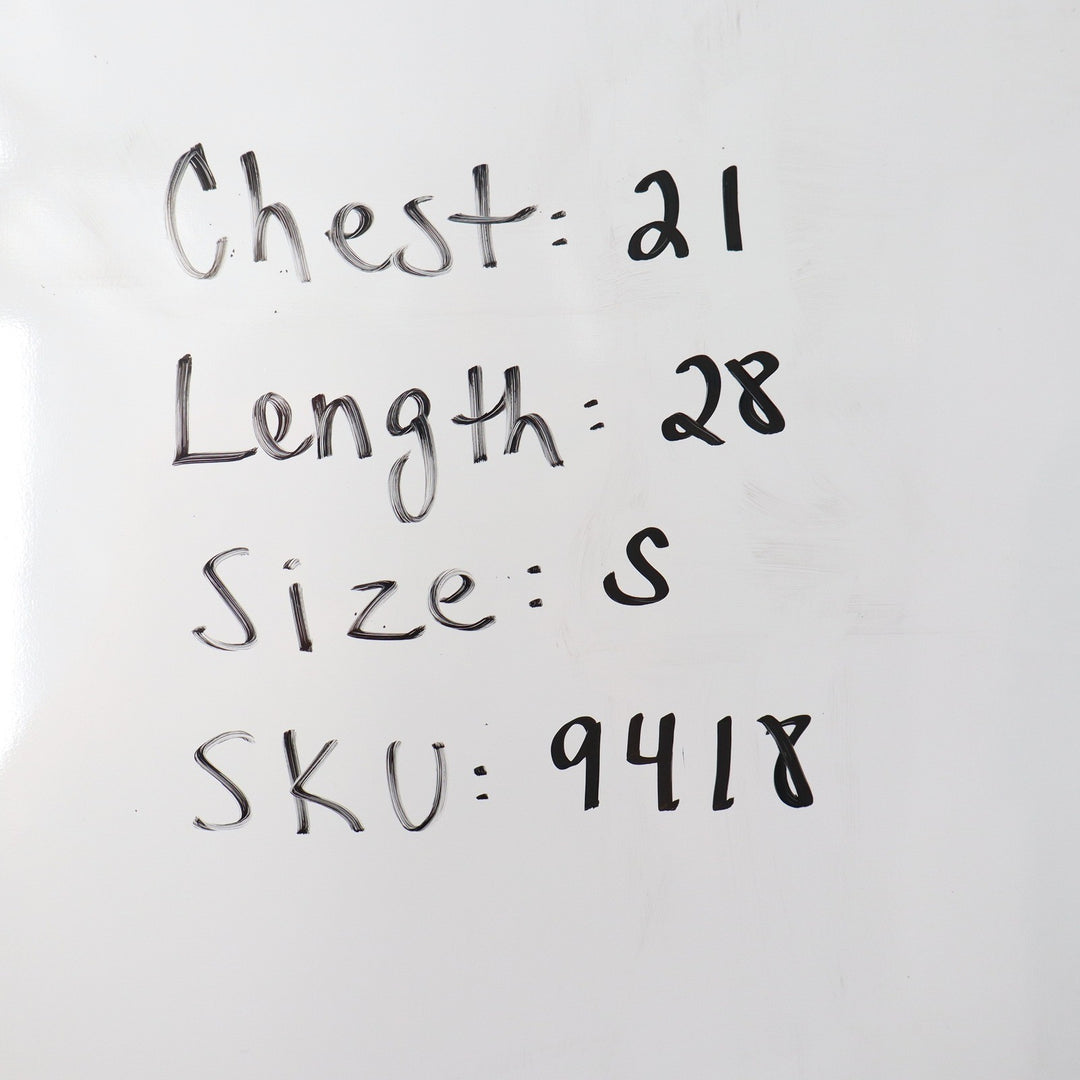 Chest: 21
Length: 28
Size: S
SKU: 9418